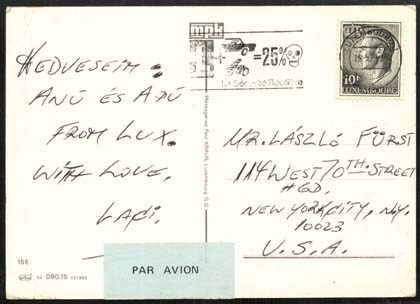 mpk
=25%
La Sécurité Routière
LUXEMBOURG
10F
LUXEMBOURG
KEDVESEIM:
ANÚ ÉS APÚ
FROM LUX.
WITH LOVE,
LACI.
MR. LÁSZLÓ FÜRST
114 WEST 70TH STREET
#6D,
NEW YORK CITY, N.Y.
10023
U. S. A.
Messageries Paul KRAUS, Luxembourg G. D.
156
090.15
PAR AVION